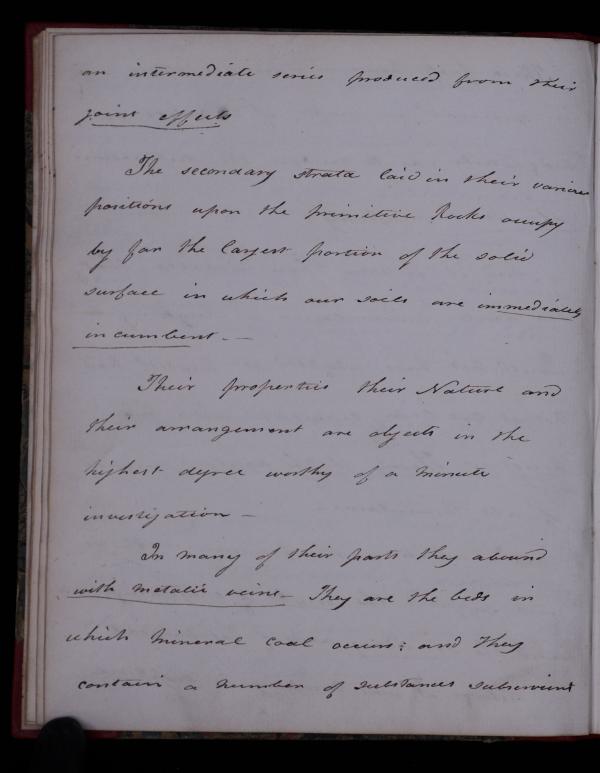 an intermediate series produced from their
joint effects
The secondary strata laid in their various
positions upon the primitive Rocks occupy
by far the largest portion of the solid
surface in which our soils are immediately
incumbent. —
Their properties their Nature and
their arrangement are objects in the
highest degree worthy of a minute
investigation —
In many of their parts they abound
with metalic veins — They are the beds in
which mineral coal occurs; and they
contain a number of substances subservient